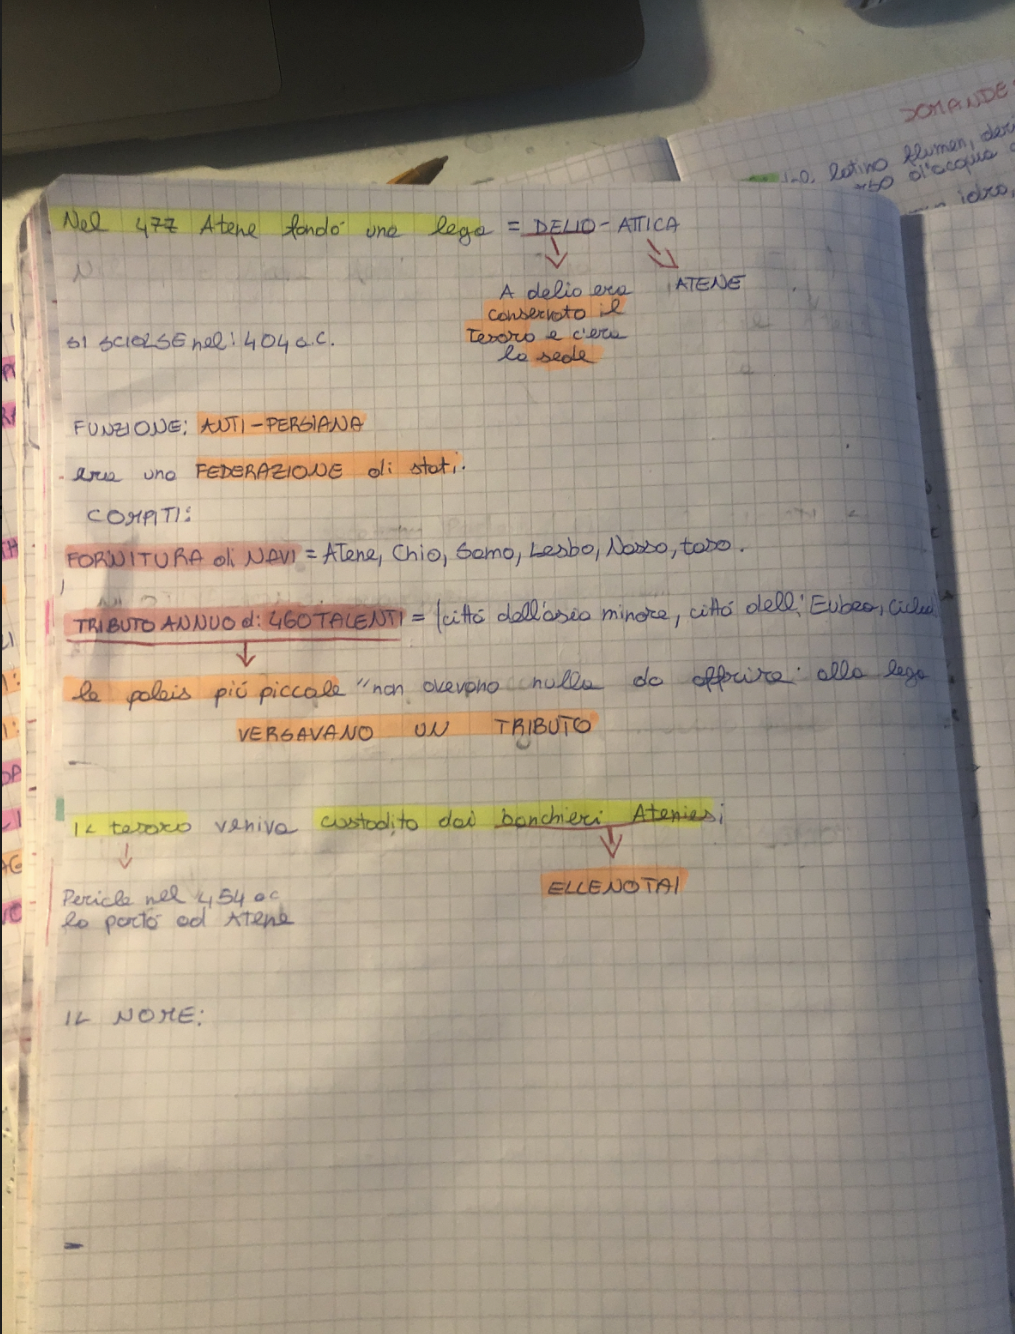 Nel 477 Atene fondó una lega = DELIO-ATTICA
A delio era
conservato il
tesoro e c'era
la sede
ATENE
SI SCIOLSE nel: 404 a.C.
FUNZIONE: ANTI-PERSIANA
era una FEDERAZIONE di stati.
COMPITI:
FORNITURA di NAVI = Atene, Chio, Samo, Lesbo, Nasso, taso.
TRIBUTO ANNUO di 460 TALENTI = (cittá dell'asia minore, cittá dell' Eubea,
le poleis piú piccole "non avevano nulla da offrire" alla lega
VERSAVANO UN TRIBUTO
IL tesoro veniva custodito dai banchieri Ateniesi
ELLENOTAI
Pericle nel 454 a.c
lo portó ad Atene
IL NOME:
DOMANDE:
latino flumen,
d'acqua
idro,